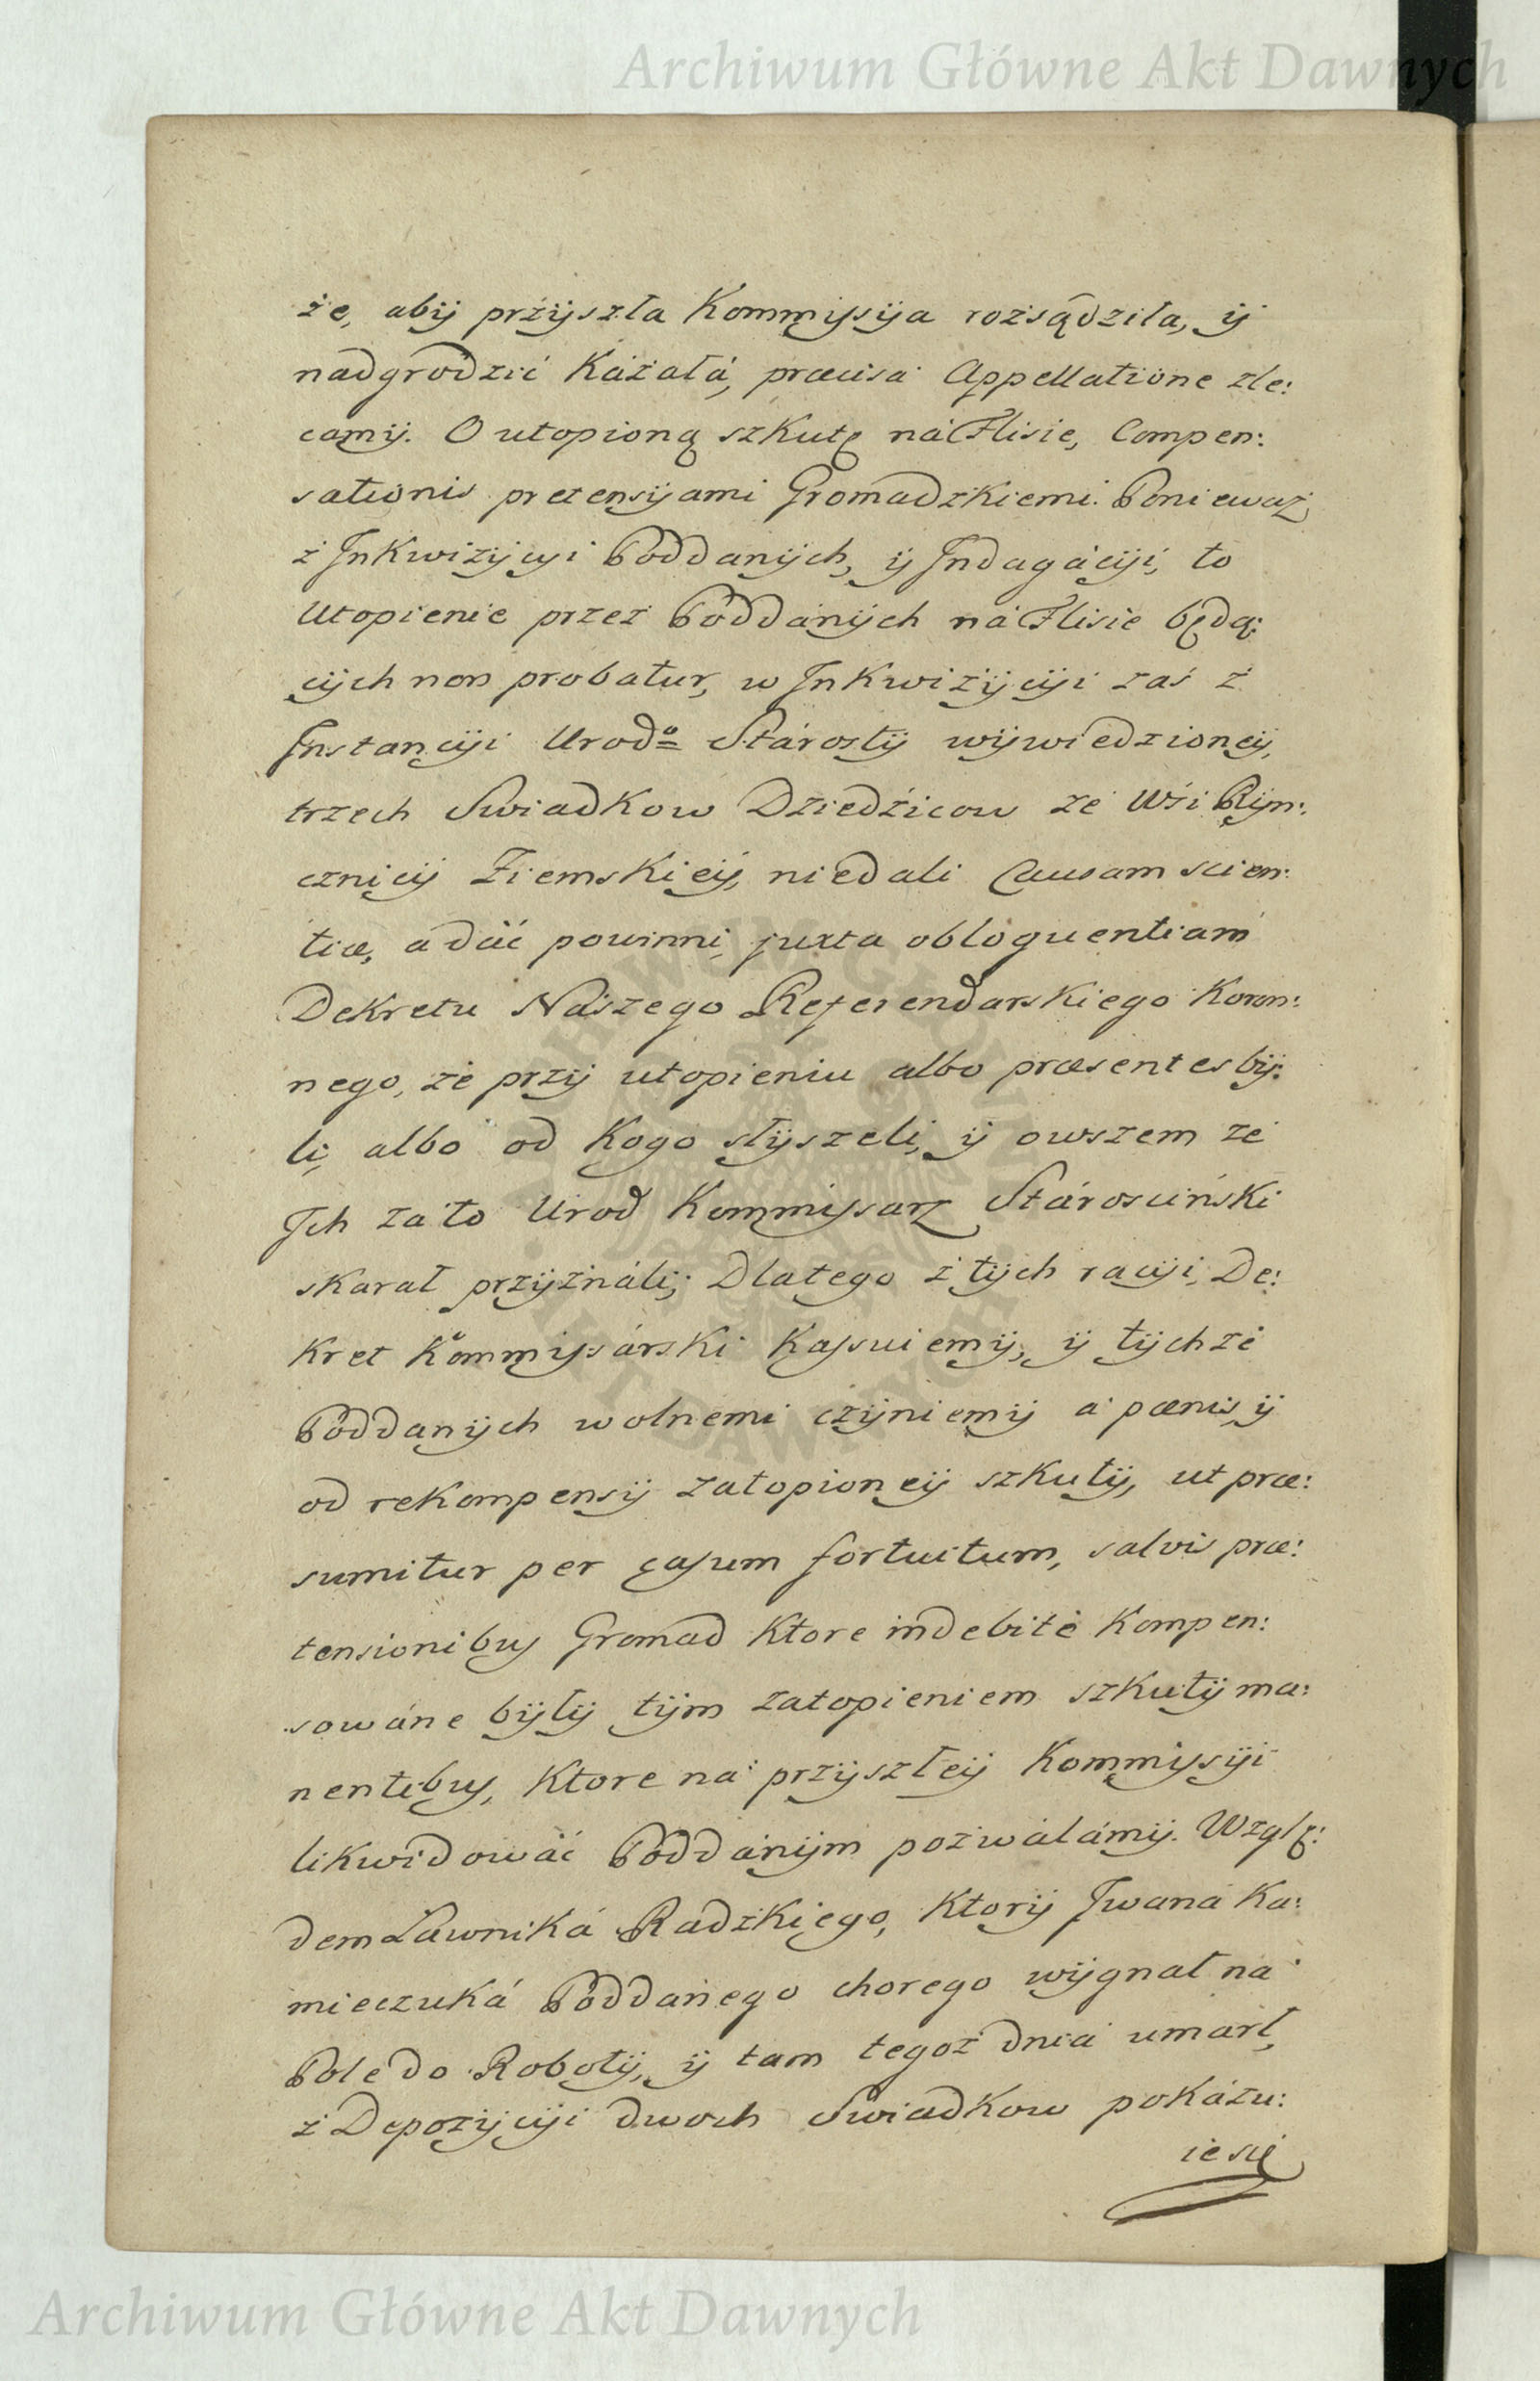 Archiwum Główne Akt Dawnych
że, abÿ przÿszła Kommissÿa rozsądziła, ÿ
nadgrodzić Kázałá, præcisa Appellatione zle:
camÿ. O utopioną szkutę ná Flisie, Compen:
sationis pretensÿami Gromadzkiemi. Ponieważ
z InKwizÿcÿi Poddanÿch, ÿ Indagácÿi, to
Utopienie przez Poddánÿch ná Flisie będą:
cÿch non probatur, w InKwizÿcÿi zaś z
Instancÿi Urodº Stárostÿ wÿwiedzioneÿ,
trzech Swiadkow Dziedźicow ze Wśi Rÿn:
cznicÿ Ziemskieÿ, niedali Causam scien:
tiæ, a dáć powinni, juxta obloquentiam
Dekretu Nászego Referendarskiego Koron:
nego, że przÿ utopieniu albo præsentes bÿ:
li, albo od Kogo słÿszeli, ÿ owszem że
Ich za to Urod Kommissarz Stárosciński
skarał przÿználi; Dlatego z tÿch racÿi, De:
kret Kommissárski Kassuiemÿ, ÿ tÿchże
Poddanÿch wolnemi czÿniemÿ a pœnis ÿ
od reKompensÿ zatopioneÿ szkutÿ, ut præ:
sumitur per casum fortuitum, salvis præ:
tensionibus Gromad Ktore indebité Kompen:
sowáne bÿłÿ tÿm zatopieniem szkutÿ ma:
nentibus, Ktore na przÿszłeÿ Kommissÿi
likwidowáć Poddánÿm pozwálámÿ. Wzglę:
dem Ławniká Radzkiego, Ktorÿ Iwana Ka:
mieczuká Poddanego chorego wÿgnał na
Pole do Robotÿ, ÿ tam tegoż dnia umarł,
z Depozÿcÿi dwoch Swiadkow pokázu:
ie się
Archiwum Główne Akt Dawnych